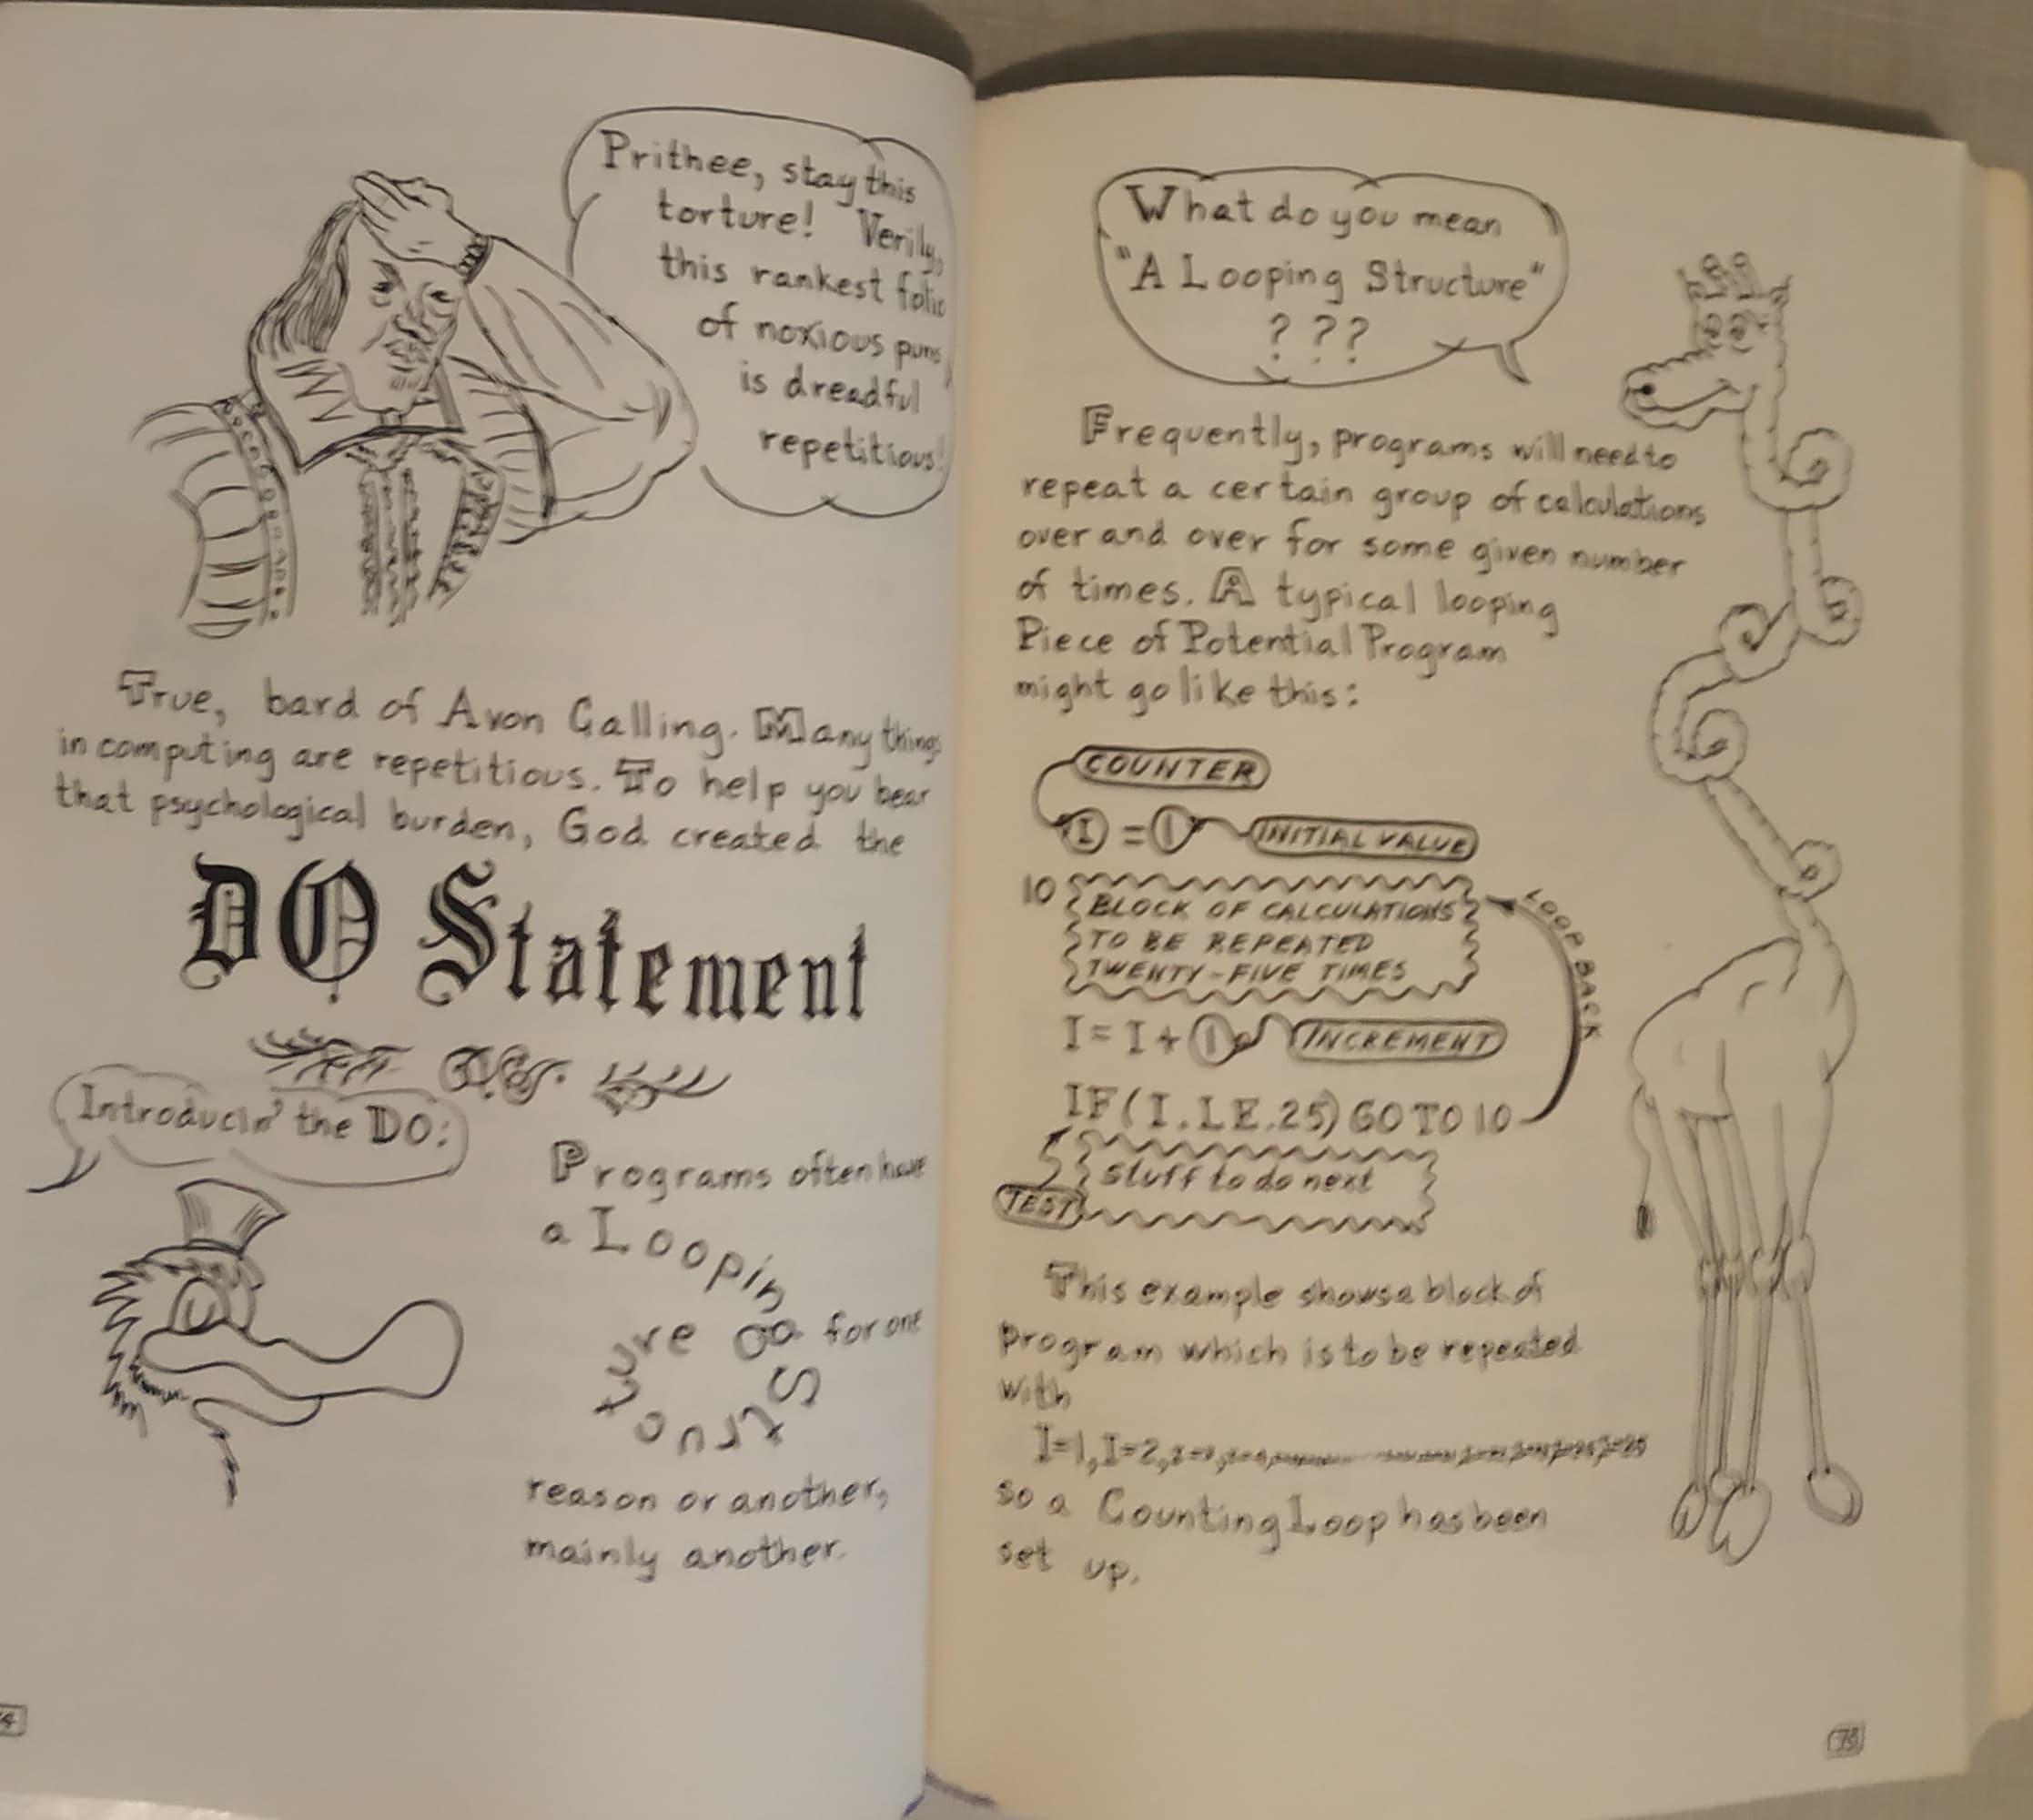 Prithee, stay this
torture! Verily,
this rankest folio
of noxious puns
is dreadful
repetitious!
True, bard of Avon Calling. Many things
in computing are repetitious. To help you bear
that psychological burden, God created the
DO Statement
Introducin' the DO:
Programs often have
a Looping Structure for one
reason or another,
mainly another.
4
What do you mean
"A Looping Structure"
???
Frequently, programs will need to
repeat a certain group of calculations
over and over for some given number
of times. A typical looping
Piece of Potential Program
might go like this:
COUNTER
I = 1 INITIAL VALUE
10 BLOCK OF CALCULATIONS
TO BE REPEATED
TWENTY-FIVE TIMES
LOOP BACK
I = I + 1 INCREMENT
IF(I.LE.25) GO TO 10
stuff to do next
TEST
This example shows a block of
program which is to be repeated
with
I=1, I=2,
so a Counting Loop has been
set up.
75